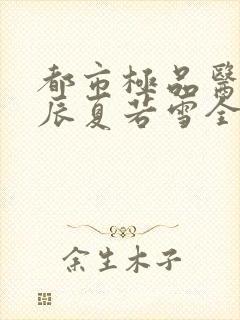 都市極品醫
辰夏若雪全
余生木子